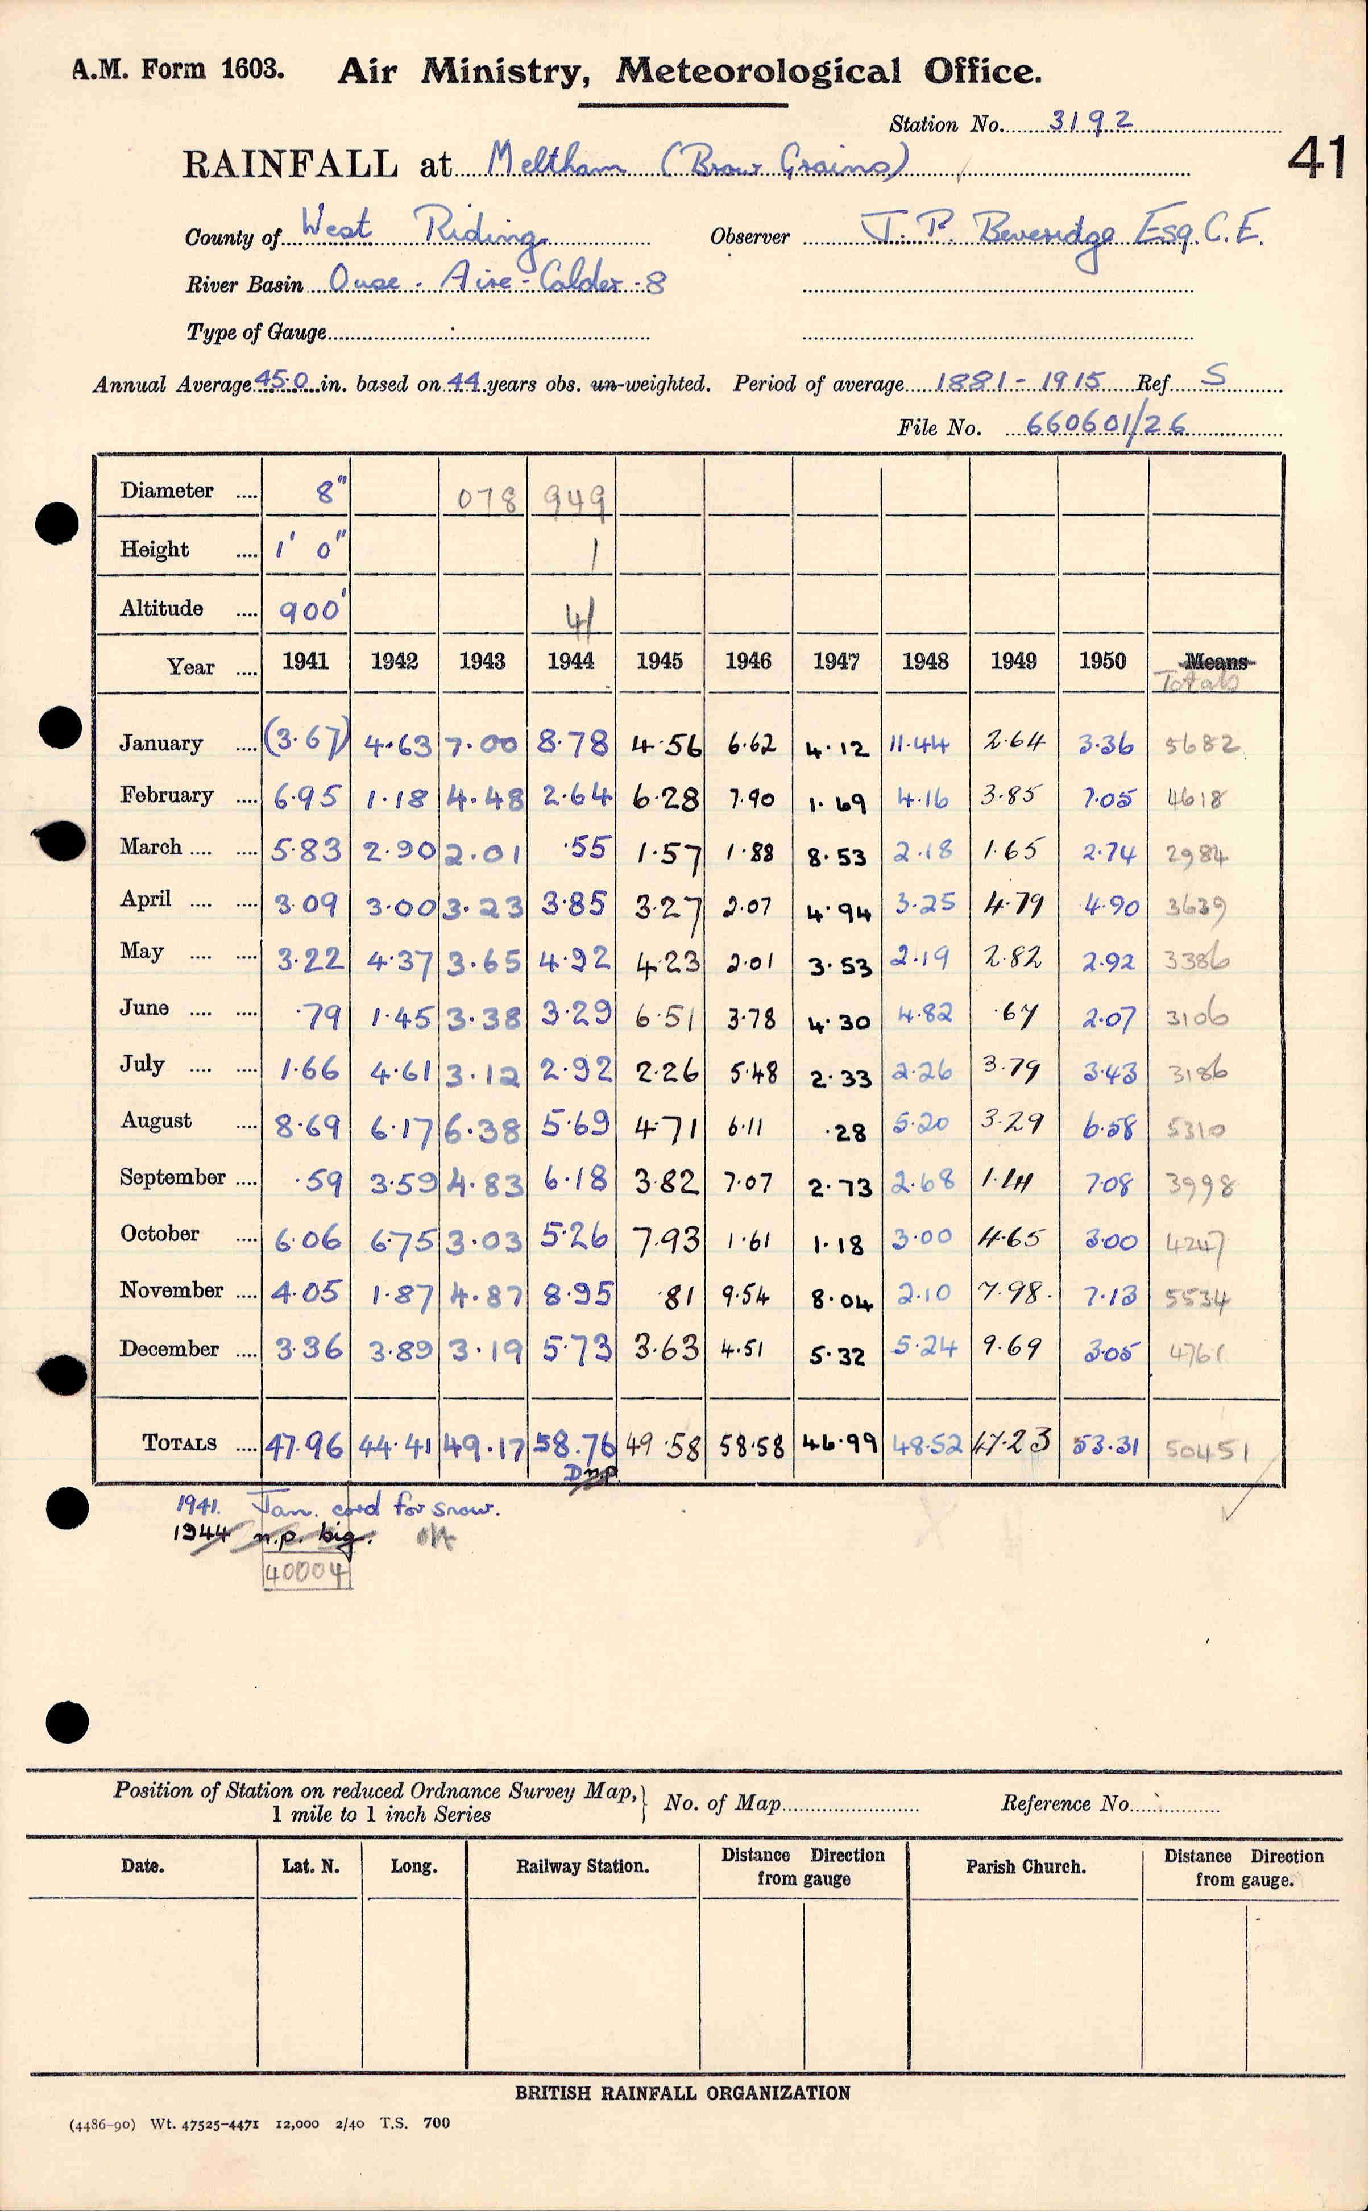 A.M. Form 1603. Air Ministry, Meteorological Office.
Station No. 3192
41
RAINFALL at Meltham (Brow Grains)
County of West Riding Observer J. P. Beveridge Esq. C.E.
River Basin Ouse - Aire - Calder - 8
Type of Gauge
Annual Average 45.0 in. based on 44 years obs. un-weighted. Period of average 1881 - 1915 Ref S
File No. 660601/26
Diameter .... 8" 078 949
Height .... 1' 0" 1
Altitude .... 900' 41
Year .... 1941 1942 1943 1944 1945 1946 1947 1948 1949 1950 Means
Totals
January .... (3.67) 4.63 7.00 8.78 4.56 6.62 4.12 11.44 2.64 3.36 5682
February .... 6.95 1.18 4.48 2.64 6.28 7.90 1.69 4.16 3.85 7.05 4618
March .... .... 5.83 2.90 2.01 .55 1.57 1.88 8.53 2.18 1.65 2.74 2984
April .... .... 3.09 3.00 3.23 3.85 3.27 2.07 4.94 3.25 4.79 4.90 3639
May .... .... 3.22 4.37 3.65 4.92 4.23 2.01 3.53 2.19 2.82 2.92 3386
June .... .... .79 1.45 3.38 3.29 6.51 3.78 4.30 4.82 .67 2.07 3106
July .... .... 1.66 4.61 3.12 2.92 2.26 5.48 2.33 2.26 3.79 3.43 3186
August .... 8.69 6.17 6.38 5.69 4.71 6.11 .28 5.20 3.29 6.58 5310
September .... .59 3.59 4.83 6.18 3.82 7.07 2.73 2.68 1.41 7.08 3998
October .... 6.06 6.75 3.03 5.26 7.93 1.61 1.18 3.00 4.65 3.00 4247
November .... 4.05 1.87 4.87 8.95 .81 9.54 8.04 2.10 7.98 7.13 5534
December .... 3.36 3.89 3.19 5.73 3.63 4.51 5.32 5.24 9.69 3.05 4761
TOTALS .... 47.96 44.41 49.17 58.76 49.58 58.58 46.99 48.52 47.23 53.31 50451
D np
1941. Jan. card for snow.
1944 n.p. big.
40004
Position of Station on reduced Ordnance Survey Map, No. of Map Reference No.
1 mile to 1 inch Series
Date. Lat. N. Long. Railway Station. Distance Direction from gauge Parish Church. Distance Direction from gauge.
BRITISH RAINFALL ORGANIZATION
(4486-90) Wt. 47525-4471 12,000 2/40 T.S. 700